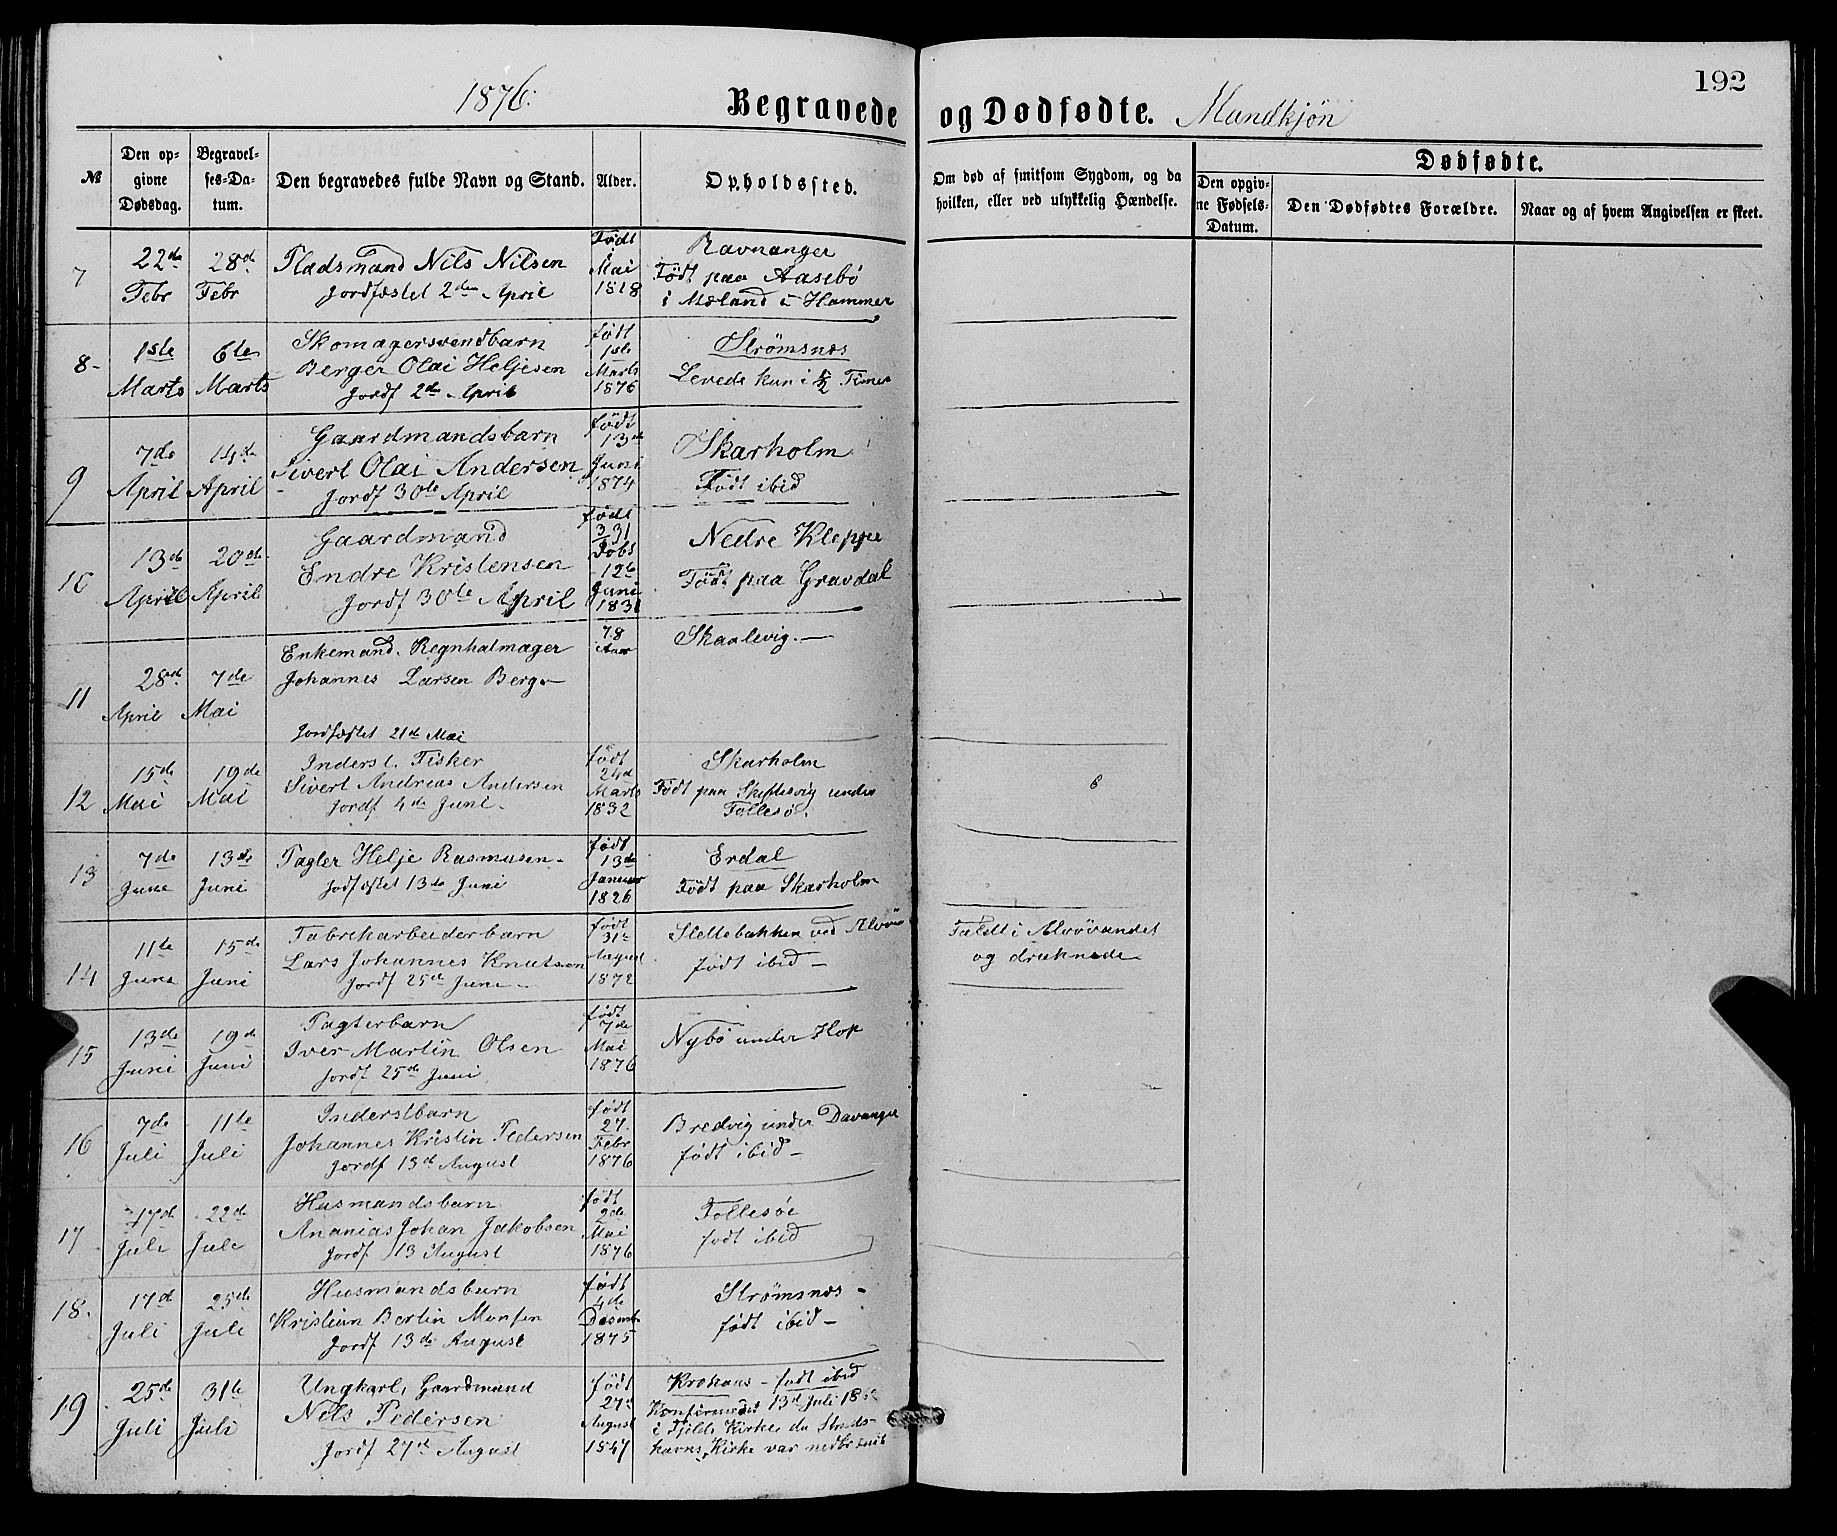 192
1876.
Begravede og Dødfødte. Mandkjøn
№
Den opgivne Dødsdag.
Begravelses-Datum.
Den begravedes fulde Navn og Stand.
Alder.
Opholdssted.
Om død af smitsom Sygdom, og da hvilken, eller ved ulykkelig Hændelse.
Dødfødte.
Den opgivne Fødsels-Datum.
Den Dødfødtes Forældre.
Naar og af hvem Angivelsen er skeet.
7
22de Febr
28de Febr
Pladsmand Nils Nilsen
Jordfæstet 2den April
Født Mai 1818
Ravnanger
Født paa Aasebö
i Mæland i Hammer
8-
1ste Marts
6te Marts
Skomagersvendbarn
Berger Olai Heljesen
Jordf 2de April
født 1ste Marts 1876
Strømsnes
Levede kun i Timer
9
7de April
14de April
Gaardmandsbarn
Sivert Olai Andersen
Jordf 30te April
født 13de Juni 1874
Skarholm
Født ibid
10
13de April
20de April
Gaardmand
Endre Kristensen
Jordf 30te April
født 12te Juni 1831
Nedre Kleppe
Født paa Gravdal
11
28de April
7de Mai
Enkemand. Regnhatmager
Johannes Larsen Berg-
Jordfæstet 21de Mai
78 Aar
Skaalevig.-
12
15de Mai
19de Mai
Inderst. Fisker
Sivert Andreas Andersen
Jordf 4de Juni.
født 24de Marts 1832
Skarholm
Født paa Skiftesvig under
Follesø.
13
7de June
13de Juni
Pagter Helje Rasmusen-
Jordfæstet 13de Juni
født 13de Januar 1826
Erdal
Født paa Skarholm
14
11te June
15de Juni
Fabrikarbeiderbarn
Lars Johannes Knutsen
Jordf 25de June-
født 31te August 1872
Slettebakken ved Alvøen
født ibid-
Faldt i Alvövandet
og druknede
15
13de Juni
19de Juni
Pagterbarn
Iver Martin Olsen
Jordf 25de Juni
født 7de Mai 1876
Nybø under Hop
16
7de Juli
11te Juli
Inderstbarn
Johannes Kristin Pedersen
Jordf 13de August
født 27. Febr 1876
Bredvig under Davanger
født ibid-
17
17de Juli
22de Jule
Husmandsbarn
Ananias Johan Jakobsen
Jordf 13 August
født 2de Mai 1876
Follesöe
født ibid
18.
17de Juli
25de Jule
Husmandsbarn
Kristian Bertin Monsen
Jordf 13de August
født 4de Desemb 1875
Strømsnes-
født ibid-
19
25de Juli
31te Juli
Ungkarl, Gaardmand
Nils Pedersen
Jordf 27de August
født 27de August 1847
Krokaas - født ibid
Konfirmeret 13de Juli 18
i Fjelds Kirke da Struds-
havns Kirke var nedbrændt